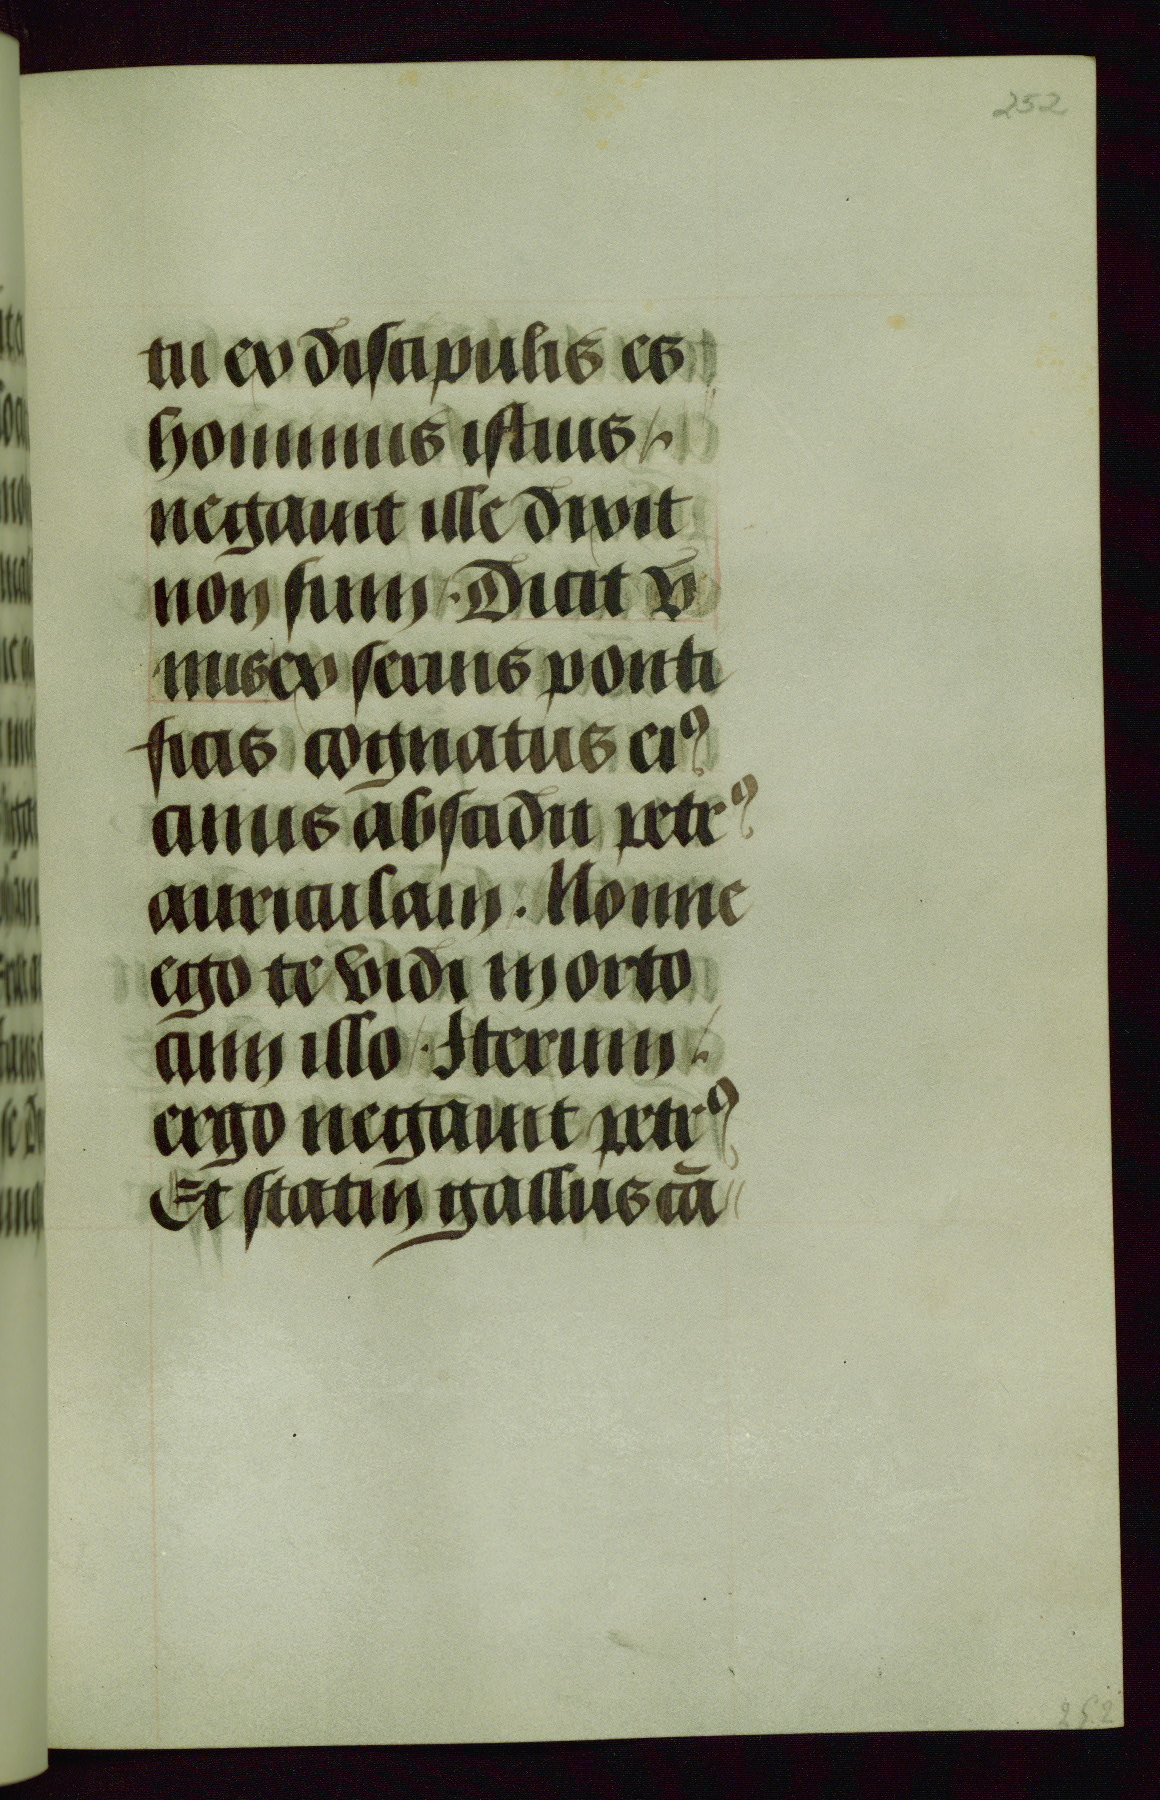 252
tu ex discipulis es
hominis istius /.
negauit ille dixit
non sum /. Dicit v
nus ex seruis ponti
ficis cognatus eiꝰ
cuius abscidit petrꝰ
auriculam . Nonne
ego te vidi in orto
cum illo /. Iterum /.
ergo negauit petrꝰ
Et statim gallus cā
252